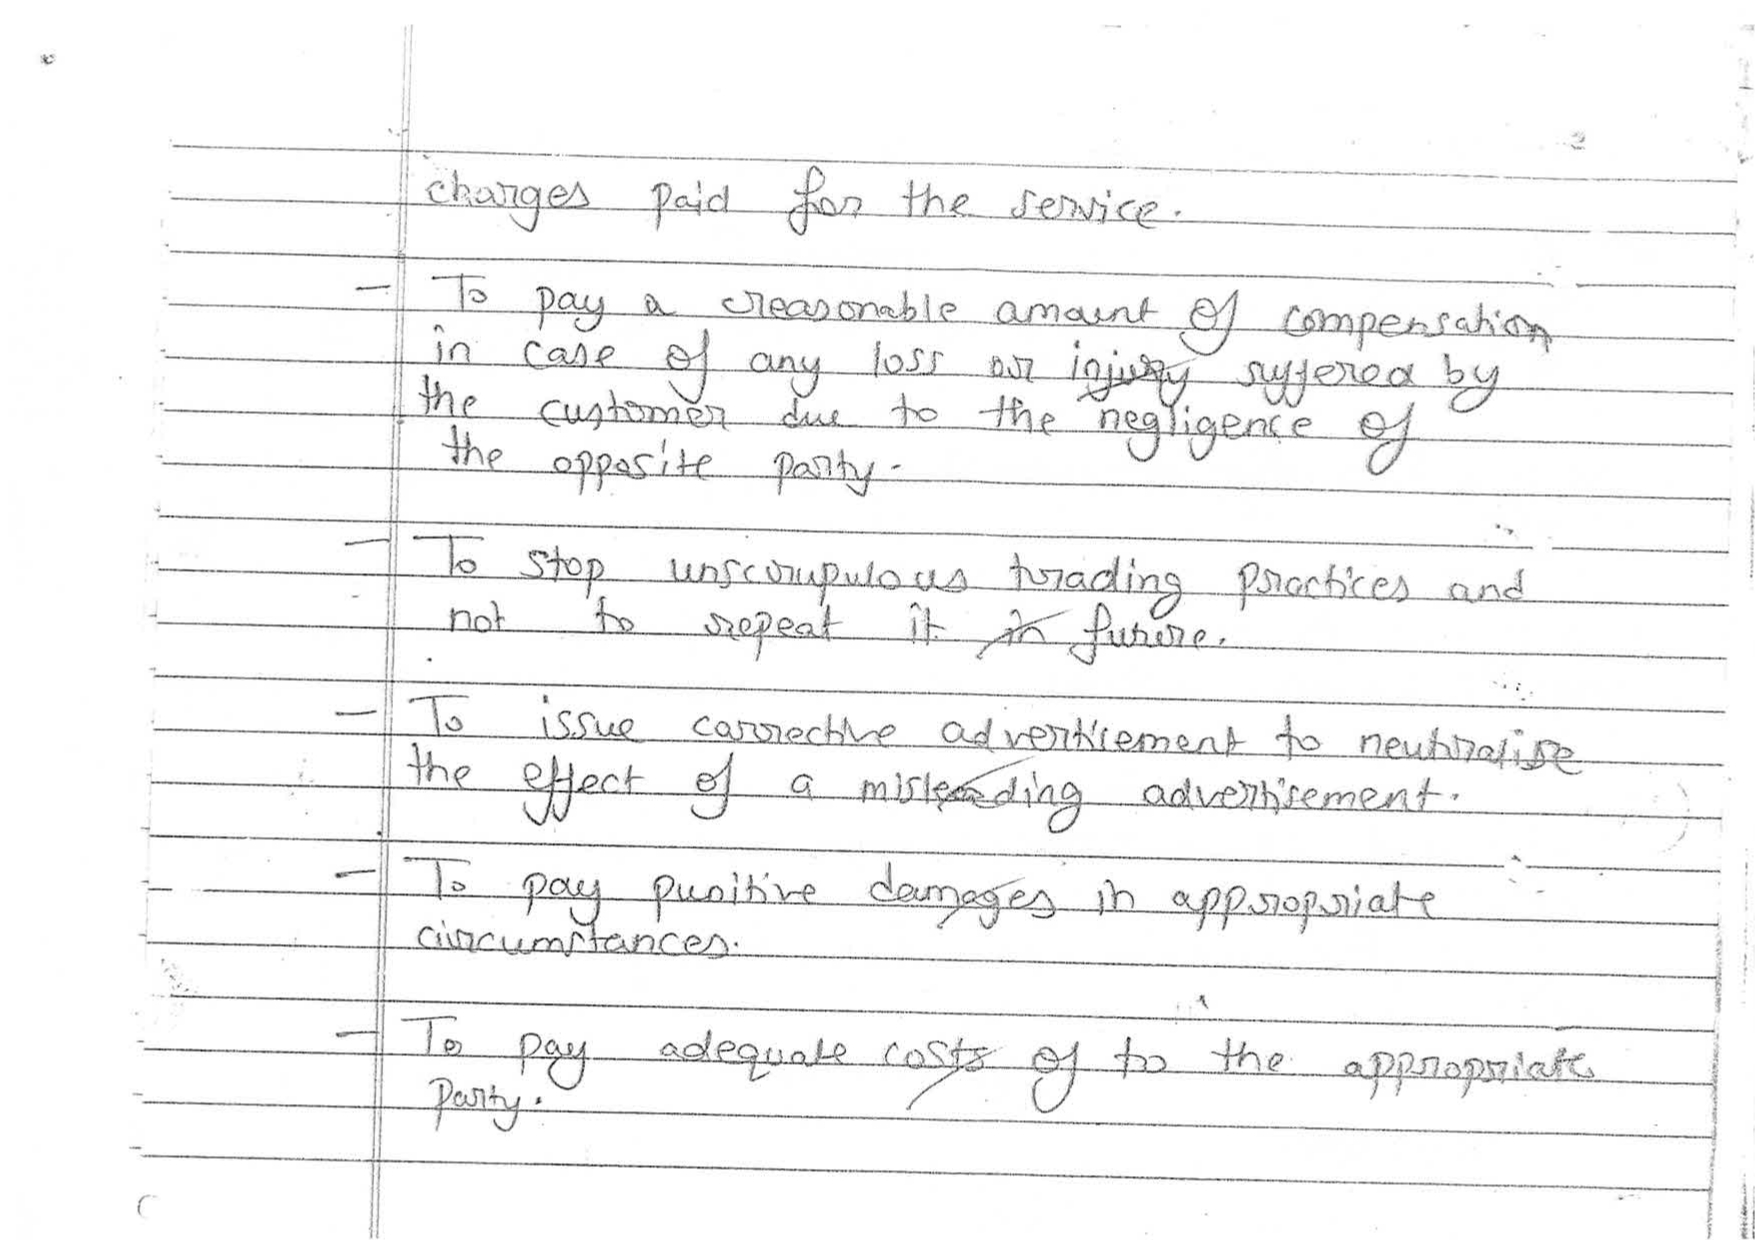 charges paid for the service.
- To pay a reasonable amount of compensation
in case of any loss or injury suffered by
the customer due to the negligence of
the opposite party.
- To stop unscrupulous trading practices and
not to repeat it in future.
- To issue corrective advertisement to neutralise
the effect of a misleading advertisement.
- To pay punitive damages in appropriate
circumstances.
- To pay adequate costs of to the appropriate
party.